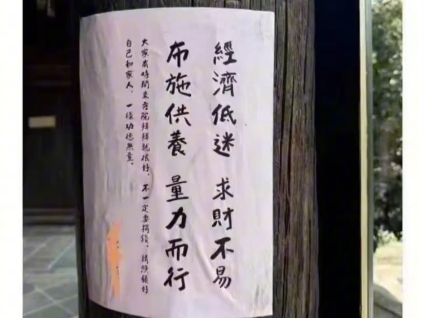 經濟低迷 求財不易
布施供養 量力而行
大家有時間來寺院拜拜就很好，不一定要捐錢，請照顧好
自己和家人，一樣功德無量。